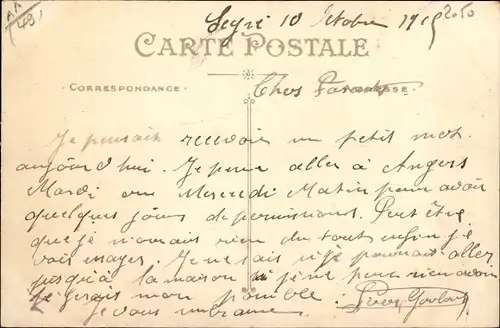 49
2050
Segré 10 Octobre 1915
CARTE POSTALE
CORRESPONDANCE
ADRESSE
Chers Parents
Je pensais recevoir un petit mot
aujourd'hui. Je peux aller à Angers
Mardi ou Mercredi Matin pour avoir
quelques jours de permissions. Peut être
que je n'aurais rien du tout enfin je
vais essayer. Je ne sais si je pourrais aller
jusqu'à la maison si j'ène peux rien avoir
Je ferais mon possible
Je vous embrasse